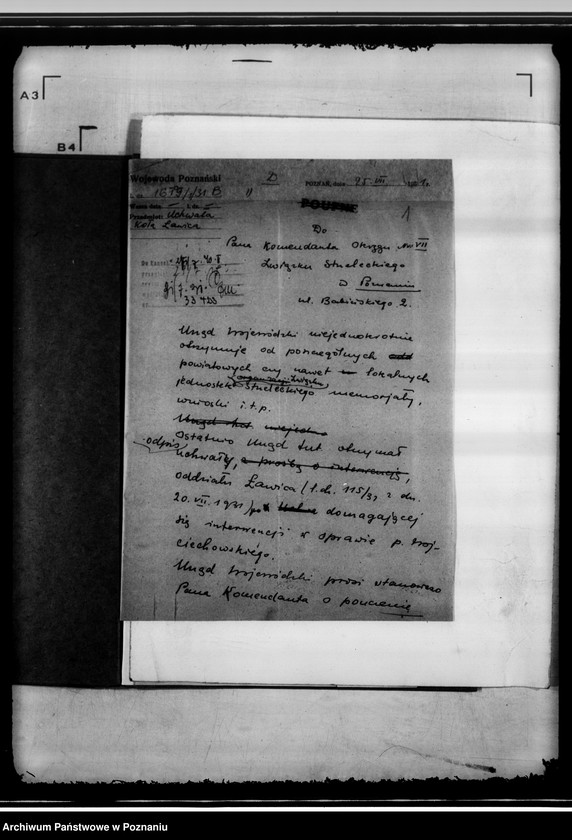 A3
B4
Wojewoda Poznański
L. dz. 1639/31 B
Wasza data — L. dz. —
Przedmiot: Uchwała
Koła Ławica
POZNAŃ, dnia 25 VII 1931.
POUFNE
1
Do
Pana Komendanta Okręgu Nr. VII
Związku Strzeleckiego
w Poznaniu
ul. Babińskiego 2.
33 400
Urząd Wojewódzki niejednokrotnie
otrzymuje od poszczególnych
powiatowych czy nawet lokalnych
jednostek organizacji Związku Strzeleckiego memorjały,
wnioski i.t.p.
Urząd tut. niejedno
Ostatnio Urząd tut. otrzymał
odpis
uchwały, z prośbą o interwencję,
oddziału Ławica /l.dz. 115/31 z dn.
20. VII. 1931/ domagającej
się interwencji w sprawie p. Woj-
ciechowskiego.
Urząd Wojewódzki prosi stanowczo
Pana Komendanta o pouczenie
Archiwum Państwowe w Poznaniu